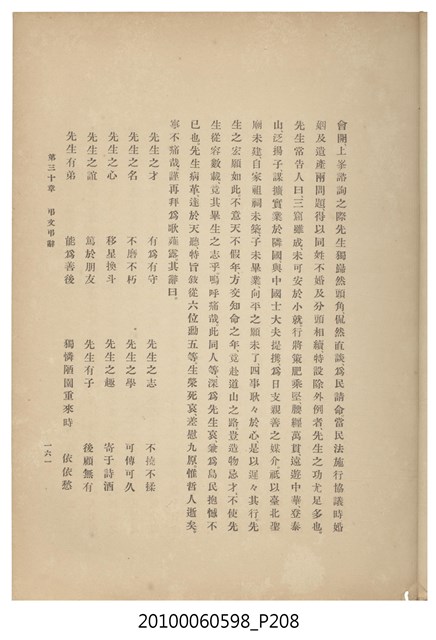 會開上峯諮詢之際先生獨歸然頭角侃然直談爲民請命當民法施行協議時婚
姻及遺產兩問題得以同姓不婚及分頭相續特設除外例者先生之功尤足多也
先生常告人曰三窟雖成未可安於小就行將策肥乘堅腰纏萬貫遠遊中華登泰
山泛揚子謀擴實業於隣國與中國士大夫提携爲日支親善之媒介祗以臺北聖
廟未建自家祖祠未築子未畢業向平之願未了四事耿々於心是以遲々其行先
生之宏願如此不意天不假年方交知命之年竟赴道山之路豈造物忌才不使先
生從容數載竟其畢生之志乎嗚呼痛哉此同人等深爲先生哀兼爲島民抱憾不
已也先生病革達於天聽特旨敍從六位勳五等生榮死哀差慰九原惟哲人逝矣
寧不痛哉謹再拜爲歌薤露其辭曰
先生之才　有爲有守　先生之志　不撓不揉
先生之名　不磨不朽　先生之學　可傳可久
先生之心　移星換斗　先生之趣　寄于詩酒
先生之誼　篤於朋友　先生有子　後顧無有
先生有弟　能爲善後　獨憐陋園重來時　依依愁
第三十章　弔文弔辭
一六一
20100060598_P208